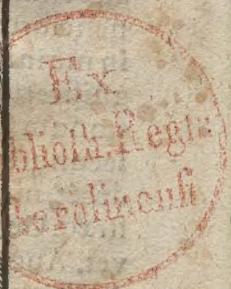 Ex
blioth. Regia
erolinensi